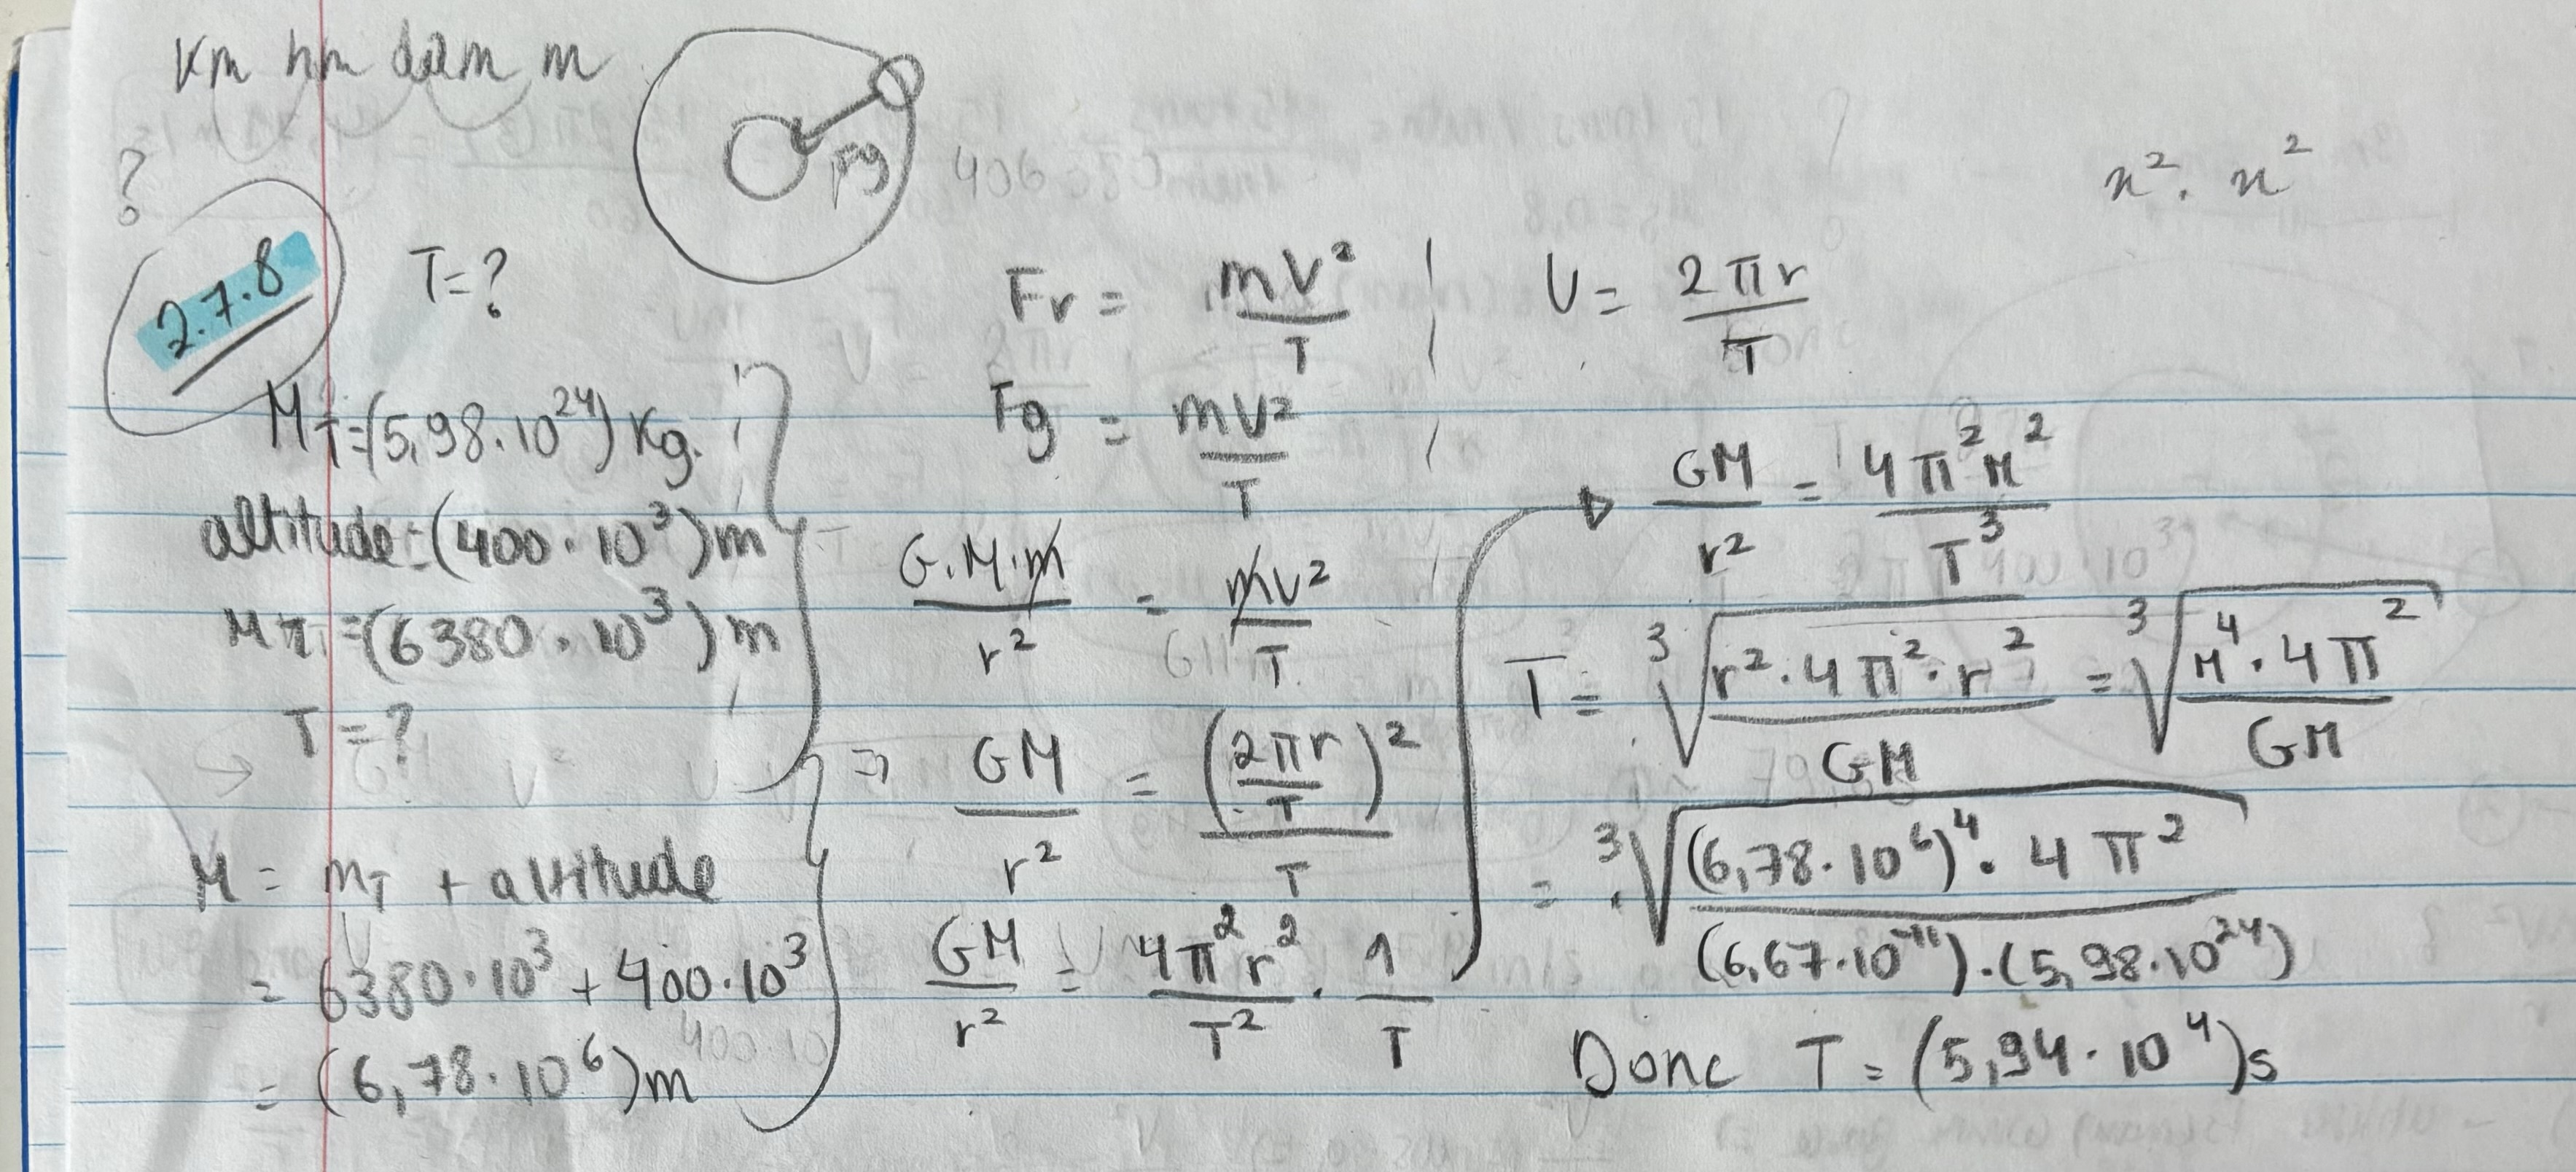 Km hm dam m
?
Fg
x² · x²
2.7.8
T=?
M_T=(5,98·10²⁴) Kg.
altitude=(400·10³)m
r_T=(6380·10³)m
T=?
r = r_T + altitude
= 6380·10³ + 400·10³
= (6,78·10⁶)m
Fr = mv²/T
Fg = mv²/T
G.M.m/r² = mv²/T
=> GM/r² = (2πr/T)²/T
GM/r² = 4π²r²/T² · 1/T
V = 2πr/T
GM/r² = 4π²r²/T³
T = ³√(r²·4π²·r²/GM) = ³√(r⁴·4π²/GM)
= ³√((6,78·10⁶)⁴·4π²/(6,67·10⁻¹¹)·(5,98·10²⁴))
Donc T = (5,94·10⁴)s